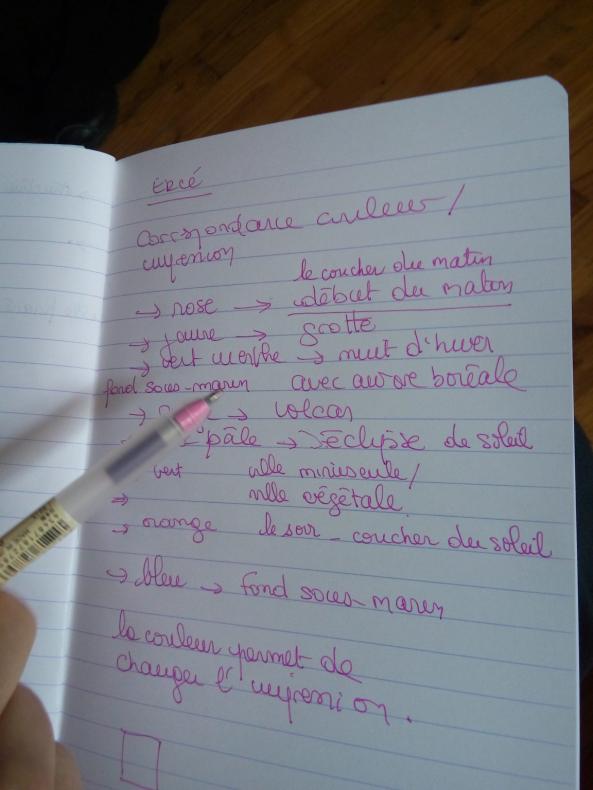 Ercé
Correspondance couleur /
impression
le coucher du matin
→ rose → début du matin
→ jaune → grotte
→ vert menthe → nuit d'hiver
fond sous-marin avec aurore boréale
→ → volcan
pâle → éclipse de soleil
vert ville minuscule /
⇒ ville végétale
→ orange le soir - coucher du soleil
→ bleu → fond sous-marin
la couleur permet de
changer l'impression.